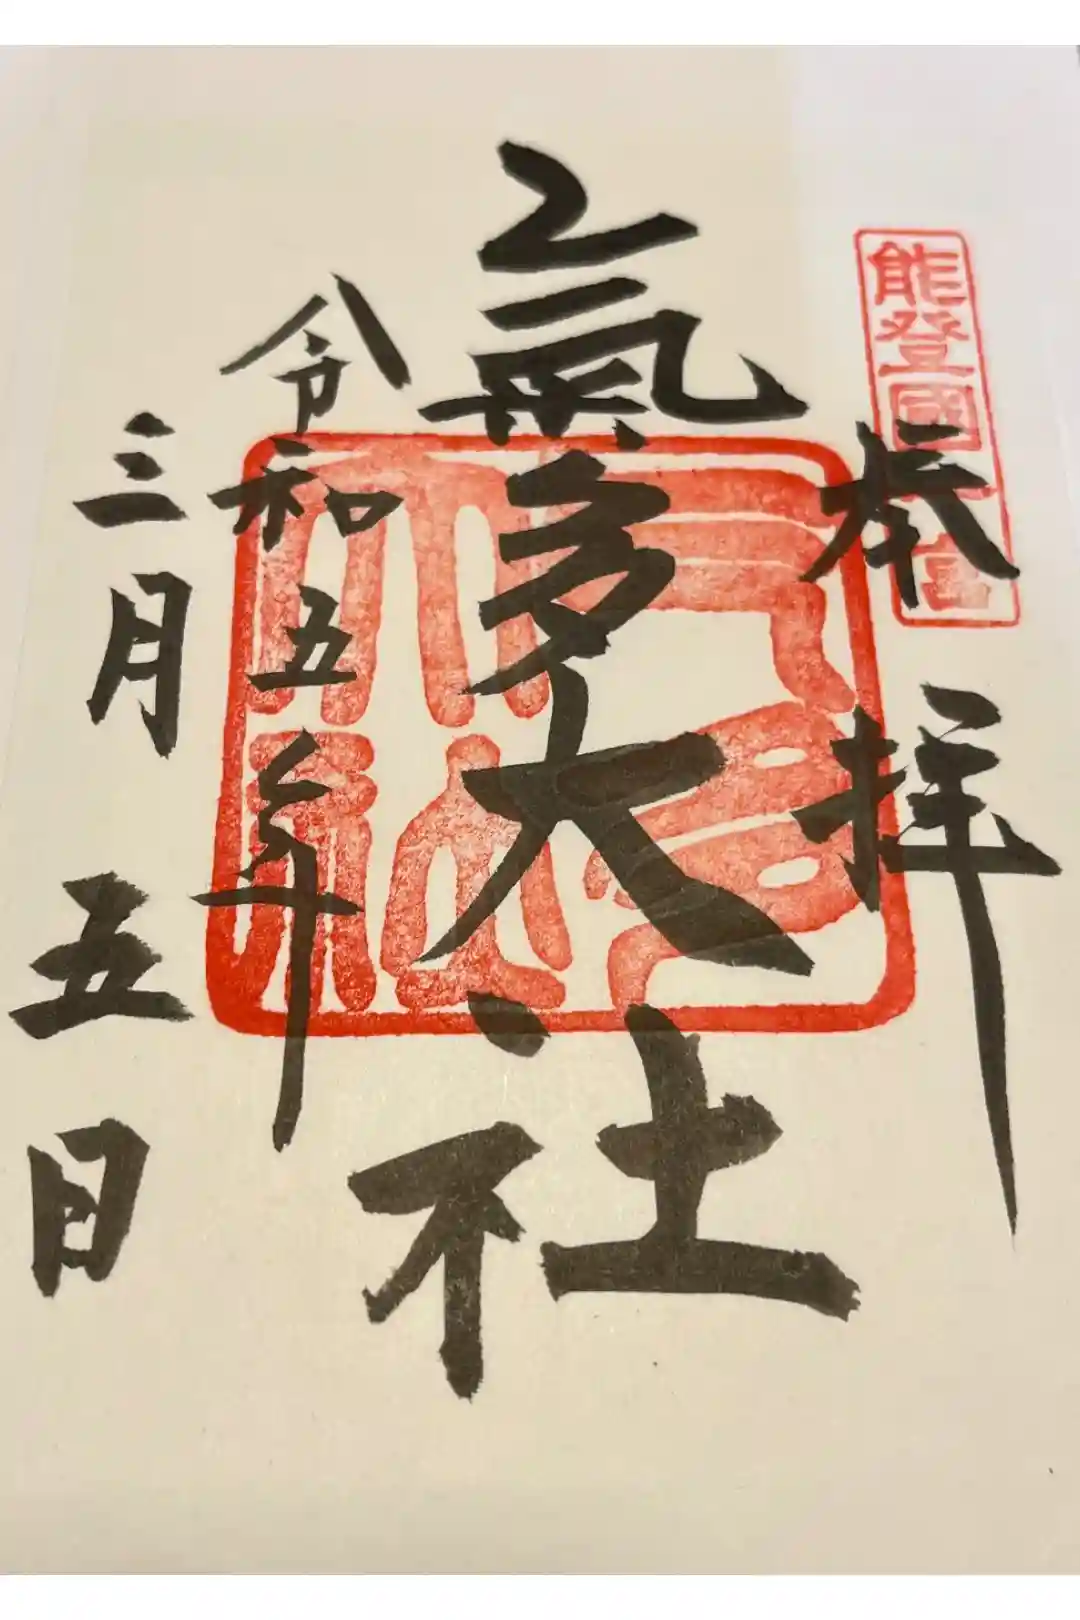 能登國一宮
奉拝
氣多大社
令和五年
三月五日